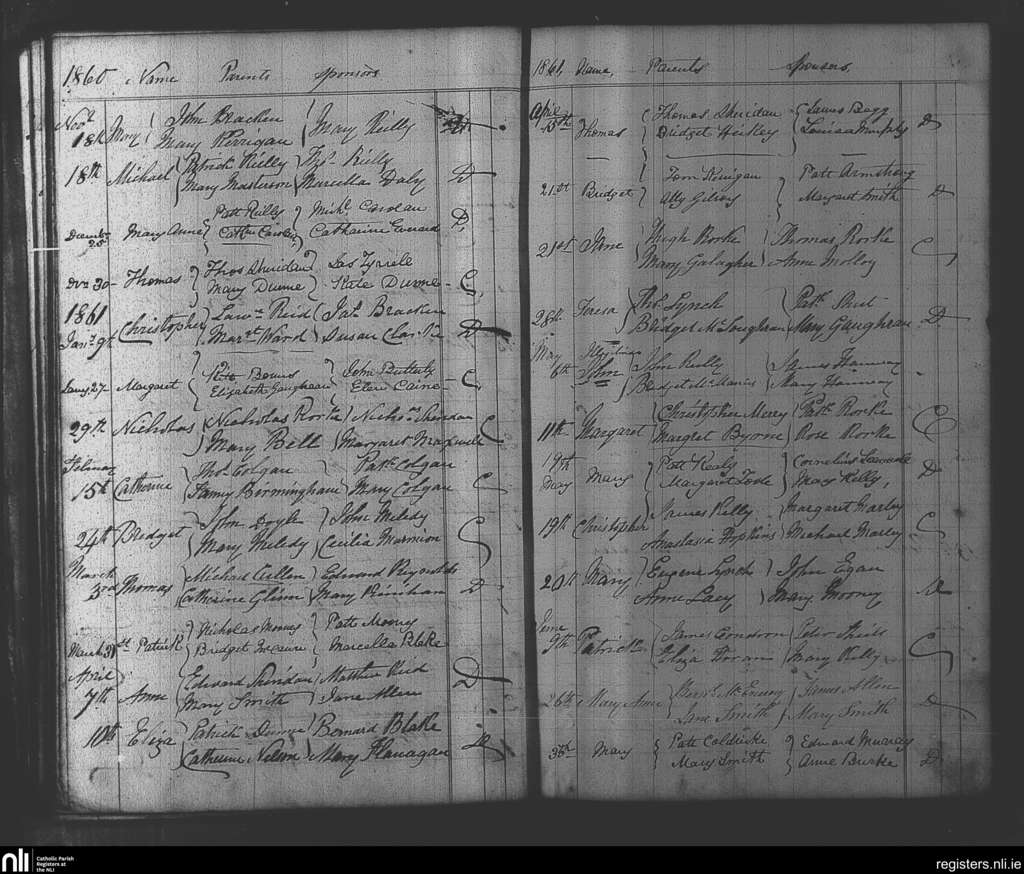 1860 Name Parents Sponsors
Novr John Bracken
18th Mary Mary Kerrigan Mary Reilly
18th Michael Patrick Reilly Thos. Reilly D
Mary Masterson Marcella Daly
Patt Reilly Michl. Carolan
December 25 Mary Anne Cathn Carolan Catharine Everard D
Do 30 Thomas Thos Sheridan Jas Tyrrele
Mary Dunne Kate Dunne C
1861
Jany. 9th Christopher Lawce Reid Jas. Bracken
Margt Ward Susan D
Jany. 27 Margaret John Butterly
Elizabeth Gaughran Ellen Caine C
29th Nicholas Nicholas Rorke Nichos Sheridan
Mary Bell Margaret Maxwell C
February
15th Catherine Thos. Colgan Patk Colgan
Fanny Birmingham Mary Colgan C
24th Bridget John Doyle John Meledy
Mary Meledy Cecilia Marmion C
March
3rd Thomas Michael Cullen Edward Reynolds
Catherine Glinn Mary Binihan D
March 31st Patrick Nicholas Mooney Patt Mooney
Bridget Marcella Blake
April
7th Anne Edward Sheridan Matthew Reid
Mary Smith Jane Allen D
10th Eliza Patrick Dunne Bernard Blake
Catherine Nelson Mary Flanagan D
1861, Name, Parents Sponsors,
April
15th Thomas Thomas Sheridan James Bagg
Bridget Hickey Louisa Murphy D
21st Bridget Tom Keegan Patt Armstrong
Atty Gilroy Margaret Smith D
21st Jane Hugh Rorke Thomas Rorke
Mary Galagher Anne Molloy C
28th Teresa Thos. Lynch Patk
Bridget McLoughran Mary Gaughran D
May Illgitimn
6th John John Reilly James Hanway
Bridget McManus Mary Hanway
11th Margaret Christopher Merey Patk Rorke
Margret Byrne Rose Rorke C
19th
May Mary Patt Realy Cornelius
Margaret Toole Mary Relly, D
19th Christopher James Relly Margaret Harley
Anastasia Hopkins Michael Marley C
20th Mary Eugene Lynch John Egan
Anne Lacy Mary Mooney D
June
9th Patrick James Condron Peter Shiels
Eliza Doran Mary Relly C
26th Mary Anne McEneny James Allen
Jane Smith Mary Smith D
30th Mary Patt Coldricke Edward Murray
Mary Smith Anne Burke D
nli
Catholic Parish
Registers at
the NLI
registers.nli.ie